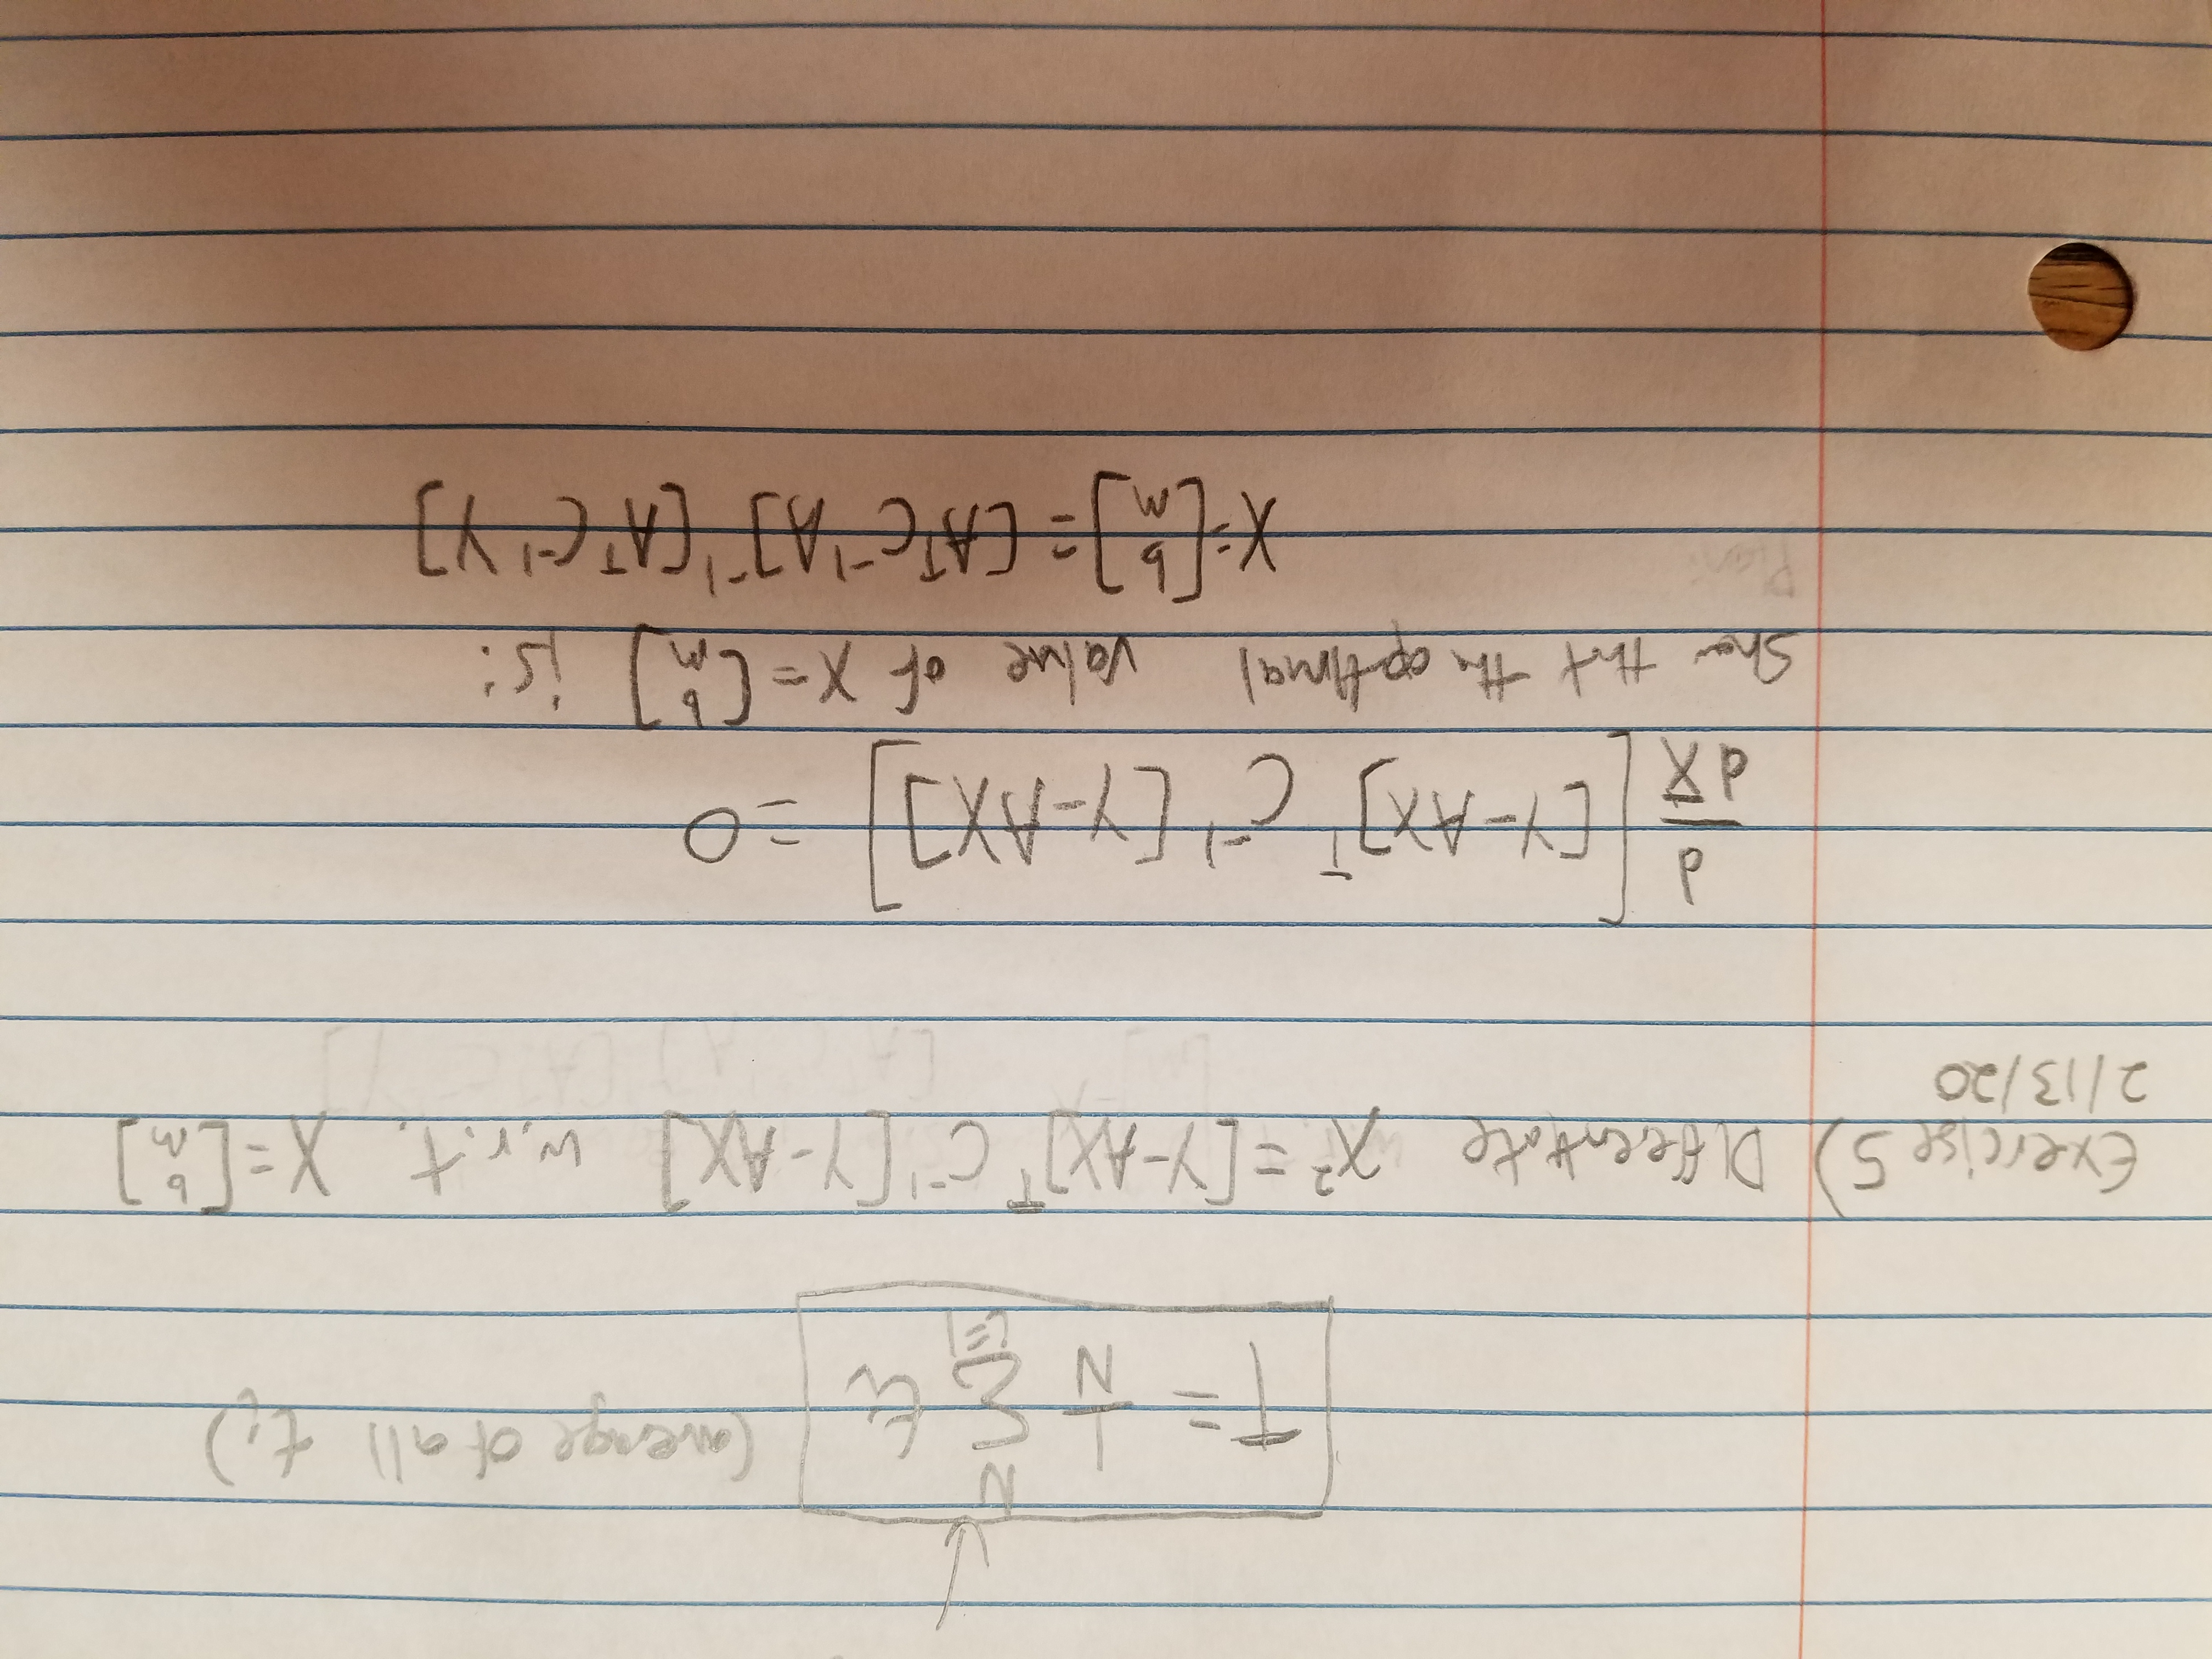 T = 1/N N Σ i=1 tᵢ (average of all tᵢ)
Exercise 5) Differentiate χ² = [Y-AX]ᵀ C⁻¹ [Y-AX] w.r.t. X = [b m]
2/13/20
d/dX [[Y-AX]ᵀ C⁻¹ [Y-AX]] = 0
Show that the optimal value of X = [b m] is:
Plan:
X = [b m] = [AᵀC⁻¹A]⁻¹ [AᵀC⁻¹Y]